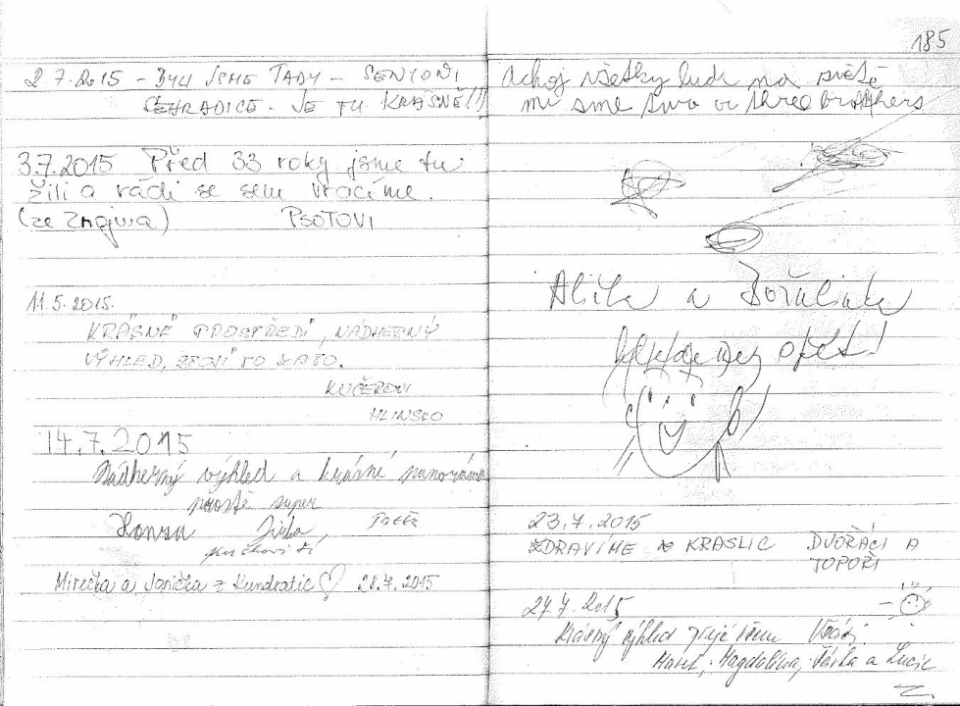 2.7.2015 - BYLI JSME TADY - SENIOŘI
HRADICE. JE TU KRÁSNĚ!!)
3.7.2015 Před 33 roky jsme tu
žili a rádi se sem vracíme.
(ze Znojma) PSOTOVI
11.5.2015.
KRÁSNÉ PROSTŘEDÍ, NÁDHERNÝ
VÝHLED, STOJÍ TO ZATO.
KUČEROVI
HLINSKO
14.7.2015
Nádherný výhled a krásné panorama
prostě super
Honza
Mirečka a Jonička z Kundratic ♡ 28.7.2015
185
Achoj všetky lude na světě
mi sme two or three brothers
a
opět!
23.7.2015
ZDRAVÍME z KRASLIC DVOŘÁCI A
TOPOŘI
27.7.2015
Krásný výhled přeje všem
Marek, Magdaléna, Šárka a Lucie